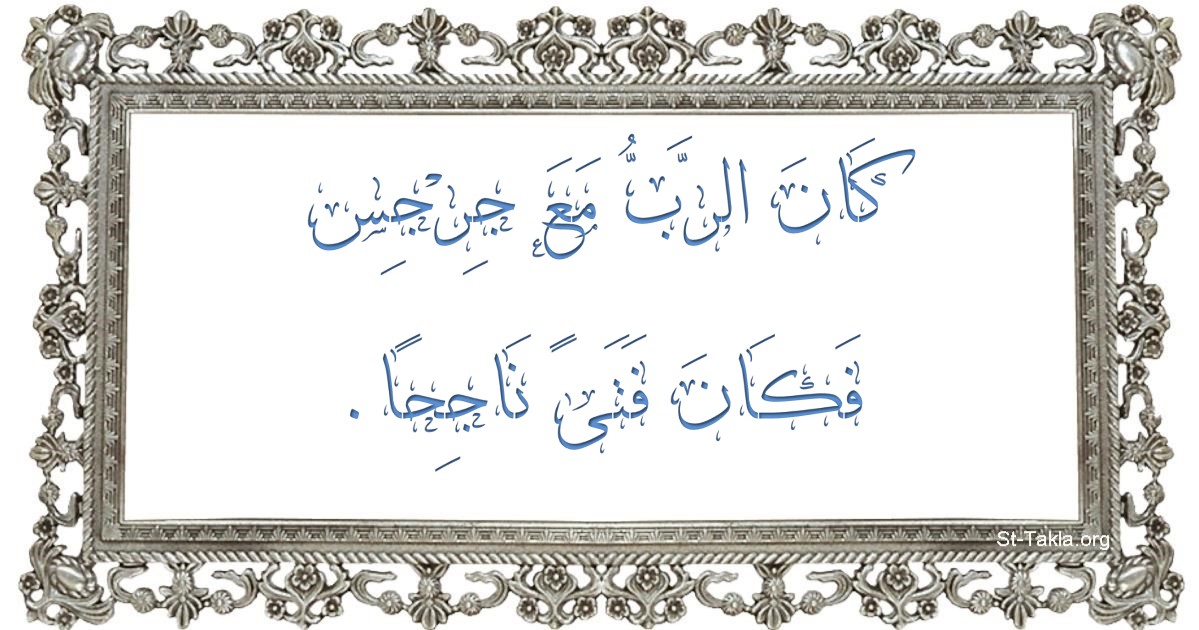 كَانَ الرَّبُّ مَعَ جِرْجِسِ
فَكَانَ فَتَىً نَاجِحًا.
St-Takla.org